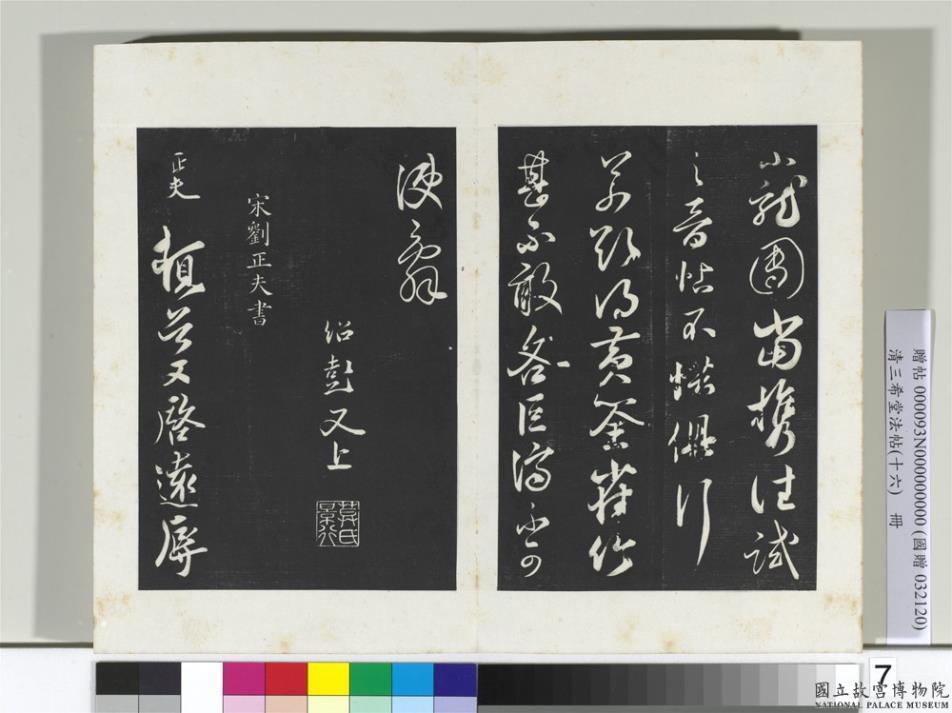 小龍團當攜往試
之音帖不惜俱行
前所得黃筌雀竹
甚不敢吝巨濟亦可
紹彭又上
宋劉正夫書
正夫
頓首又啓遠辱
贈帖 000093N000000000 (國贈 032120)
清三希堂法帖(十六) 冊
7
國立故宮博物院
NATIONAL PALACE MUSEUM